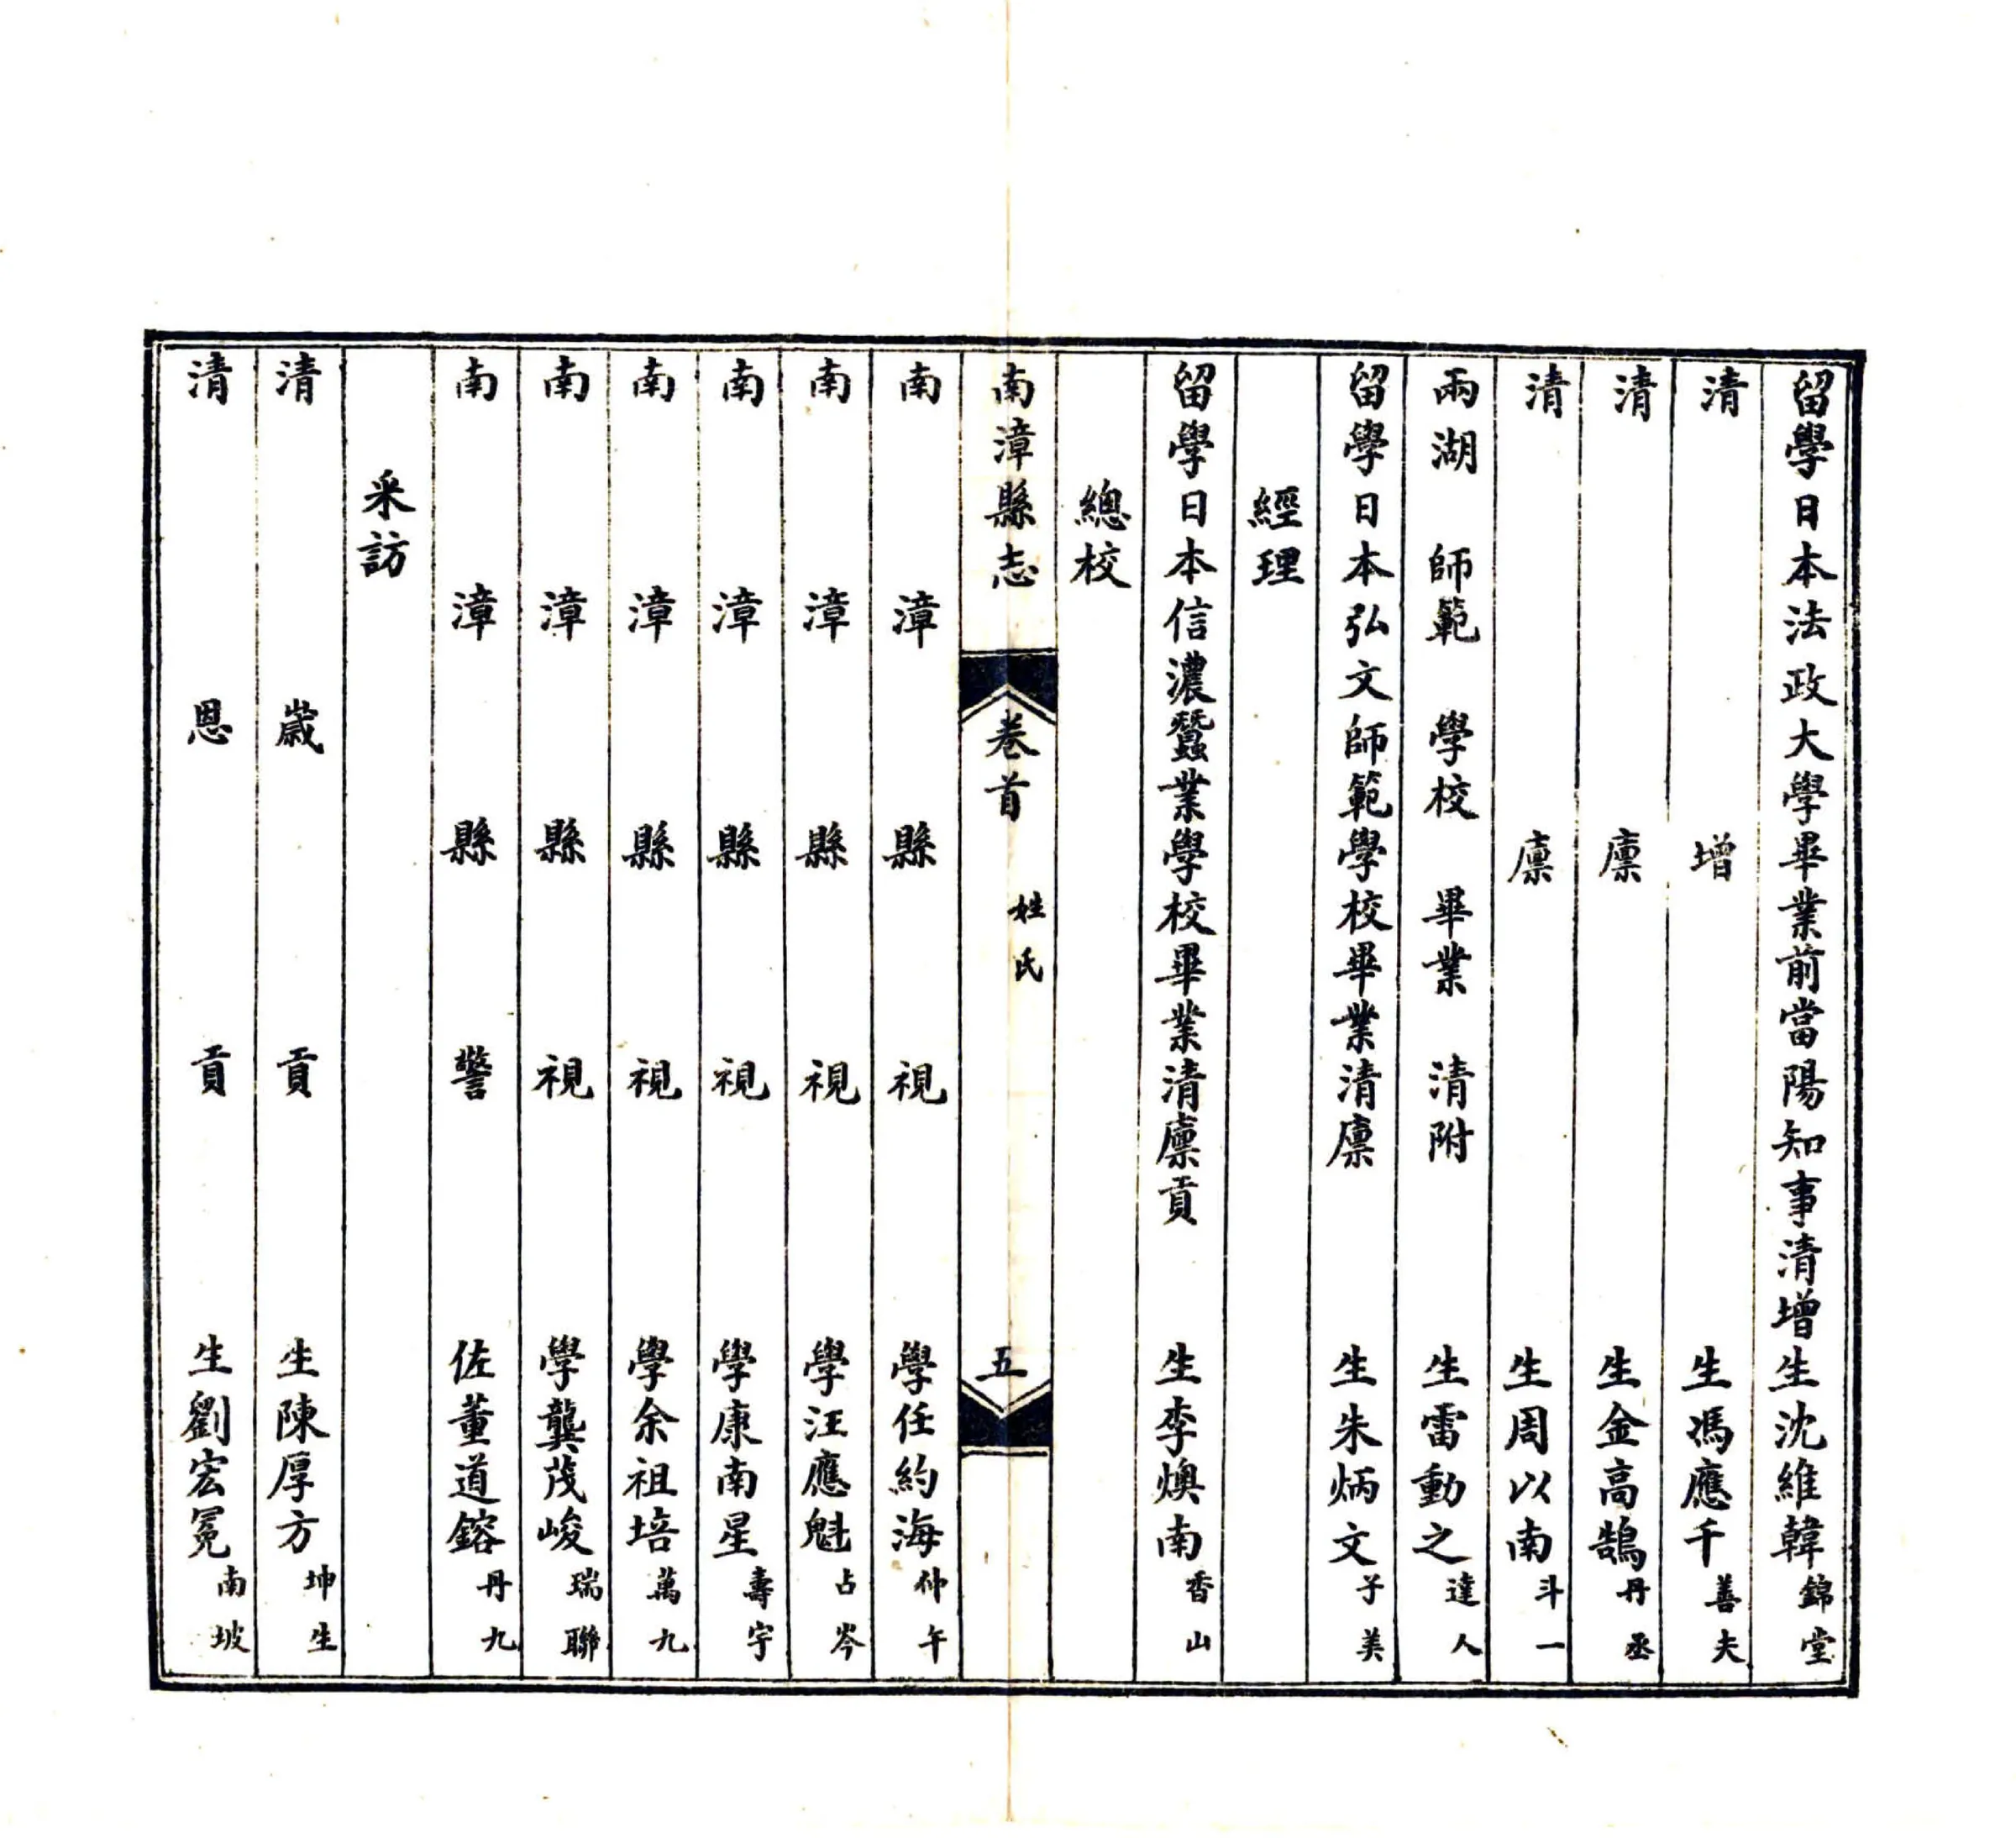 留學日本法政大學畢業前當陽知事清增生沈維韓錦堂
清增生馮應千善夫
清廩生金高鵠丹丞
清廩生周以南斗一
兩湖師範學校畢業清附生雷動之達人
留學日本弘文師範學校畢業清廩生朱炳文子美
經理
留學日本信濃蠶業學校畢業清廩貢生李煥南香山
總校
南漳縣志 卷首 姓氏 五
南漳縣視學任約海仲午
南漳縣視學汪應魁占岑
南漳縣視學康南星壽宇
南漳縣視學余祖培萬九
南漳縣視學龔茂峻瑞聯
南漳縣警佐董道鎔丹九
采訪
清歲貢生陳厚方坤生
清恩貢生劉宏冕南坡